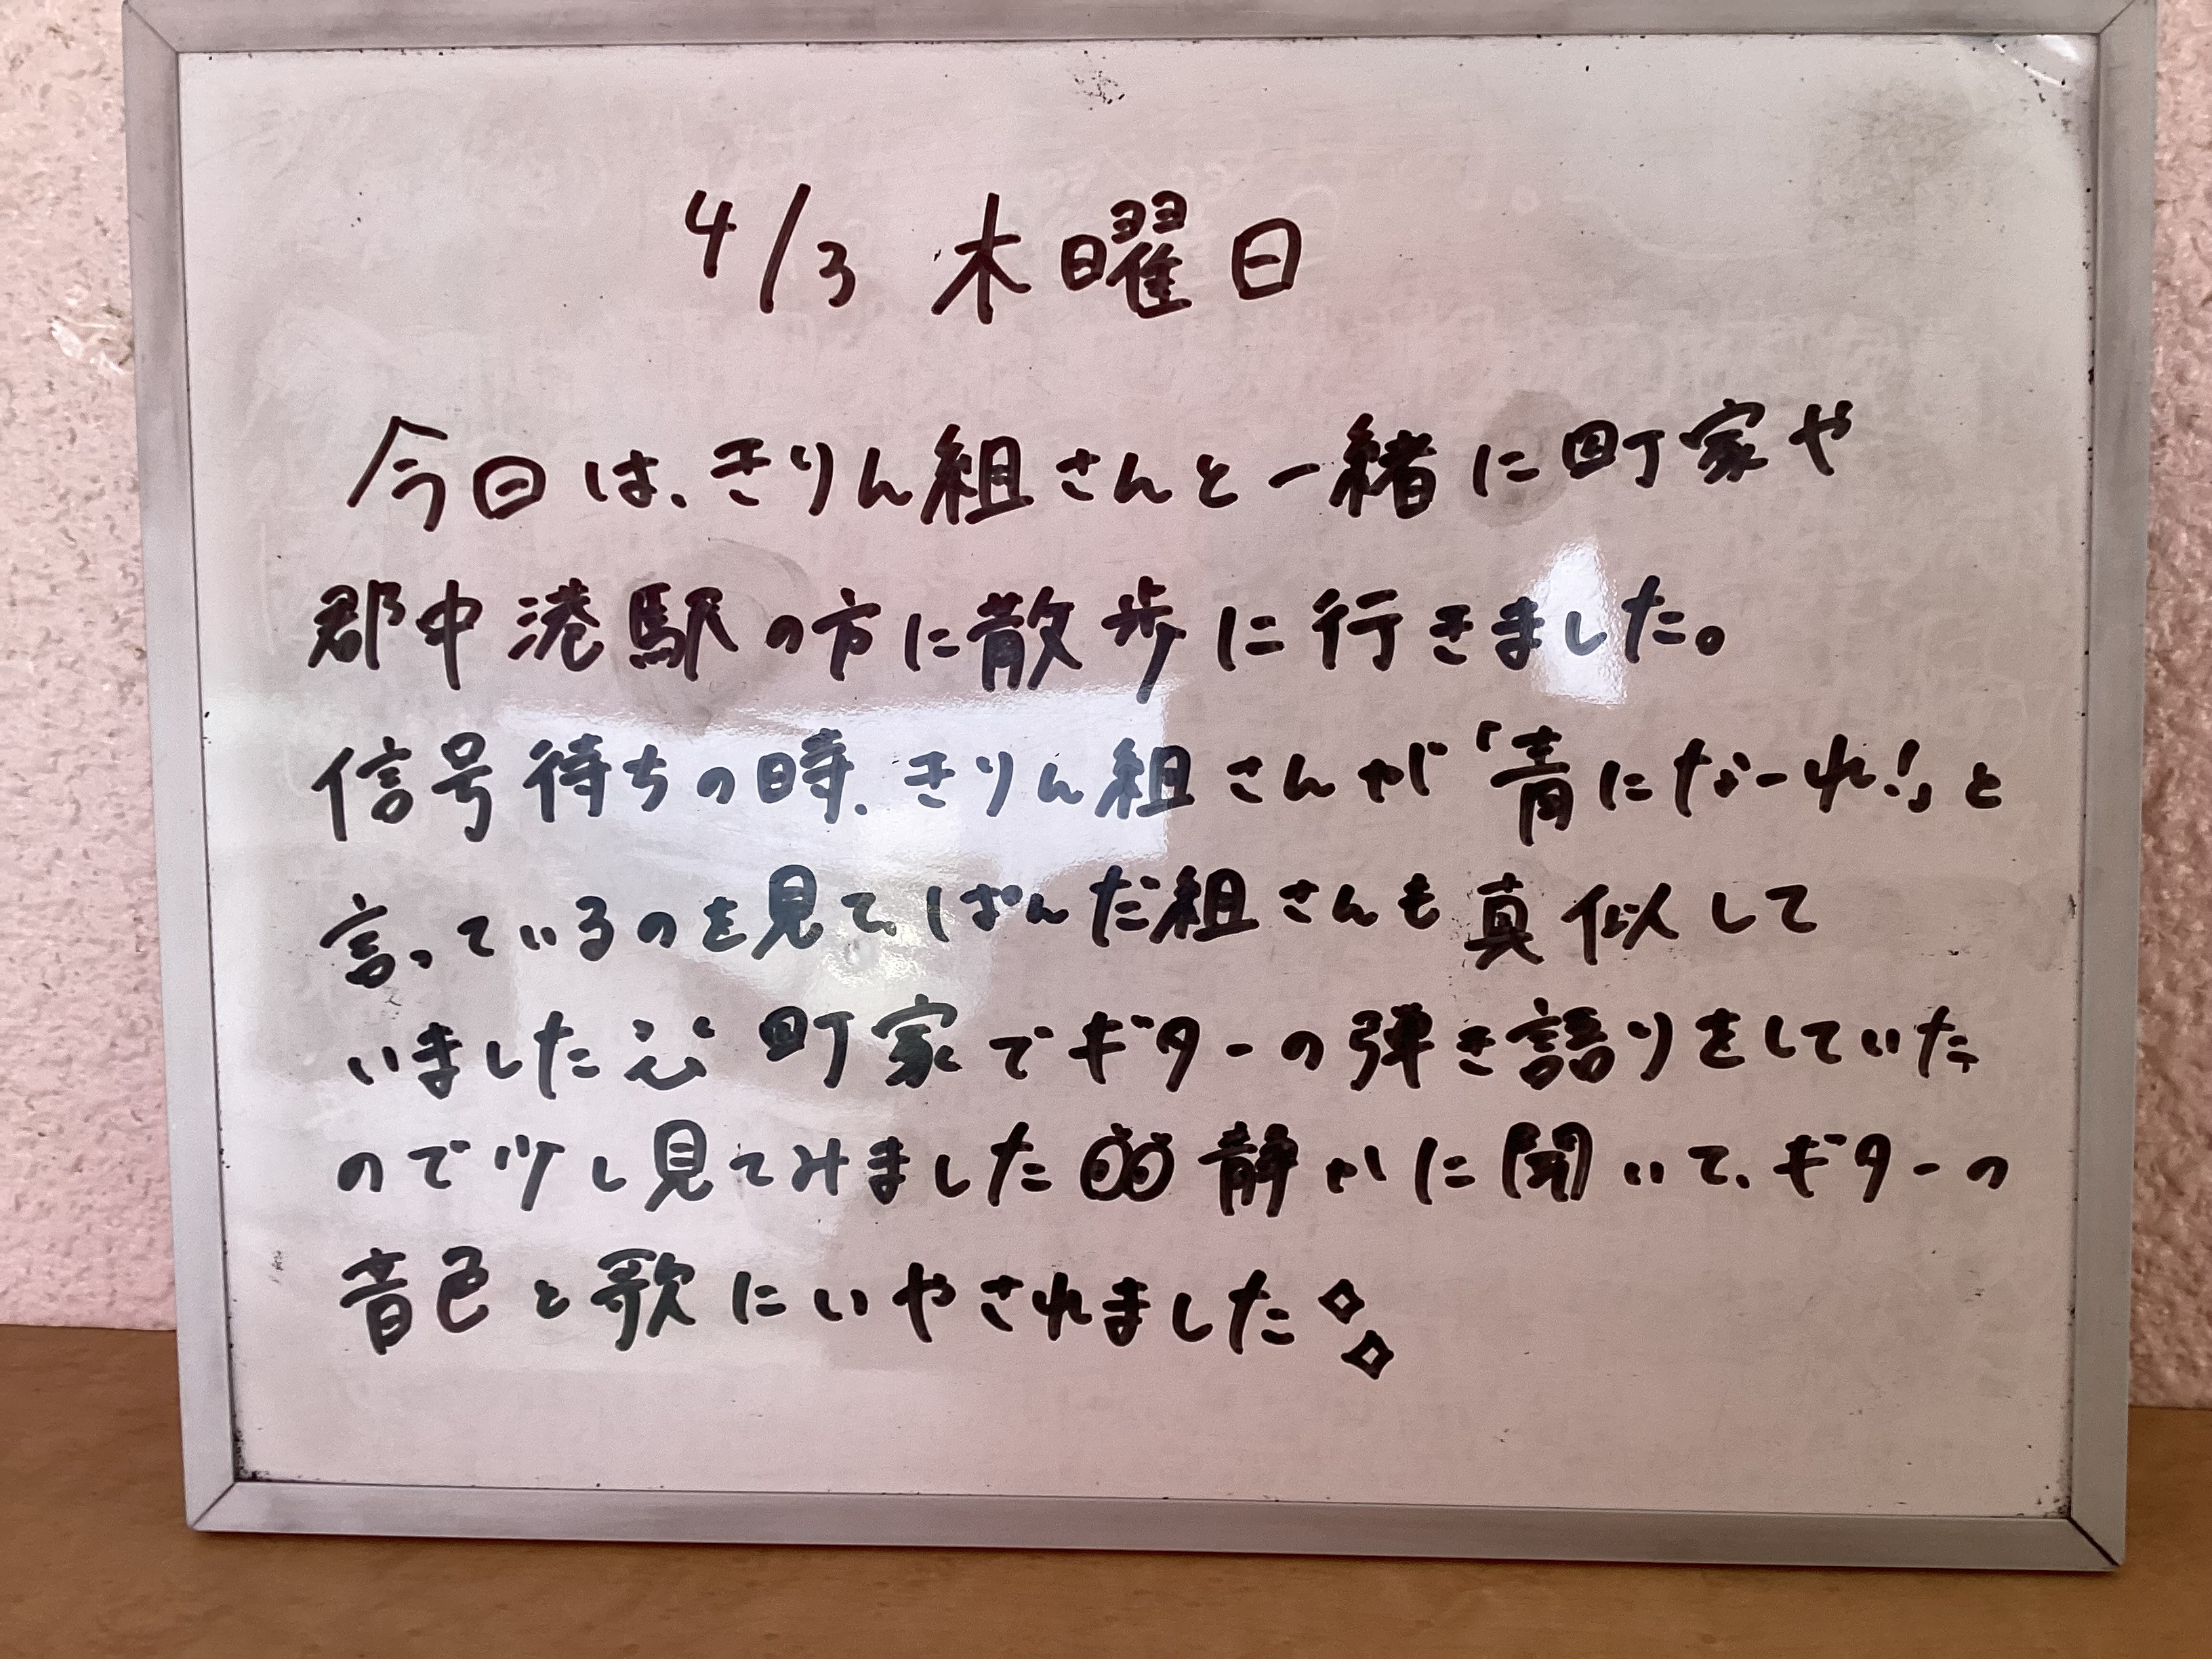 4/3 木曜日
今日は、きりん組さんと一緒に町家や
郡中港駅の方に散歩に行きました。
信号待ちの時、きりん組さんが「青になーれ!」と
言っているのを見て、ぱんだ組さんも真似して
いました 町家でギターの弾き語りをしていた
ので少し見てみました 静かに聞いて、ギターの
音色と歌にいやされました